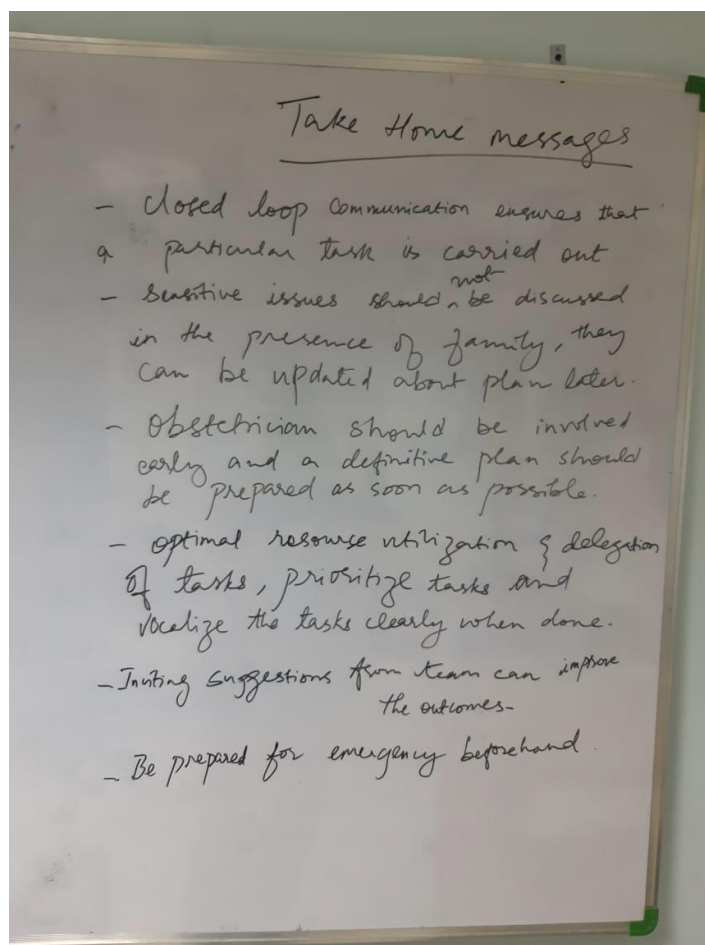 Take Home messages
- Closed loop communication ensures that
a particular task is carried out
- Sensitive issues should not be discussed
in the presence of family, they
can be updated about plan later.
- Obstetrician should be involved
early and a definitive plan should
be prepared as soon as possible.
- optimal resourse utilization & delegation
of tasks, prioritize tasks and
vocalize the tasks clearly when done.
- Inviting suggestions from team can improve
the outcomes-
- Be prepared for emergency beforehand.